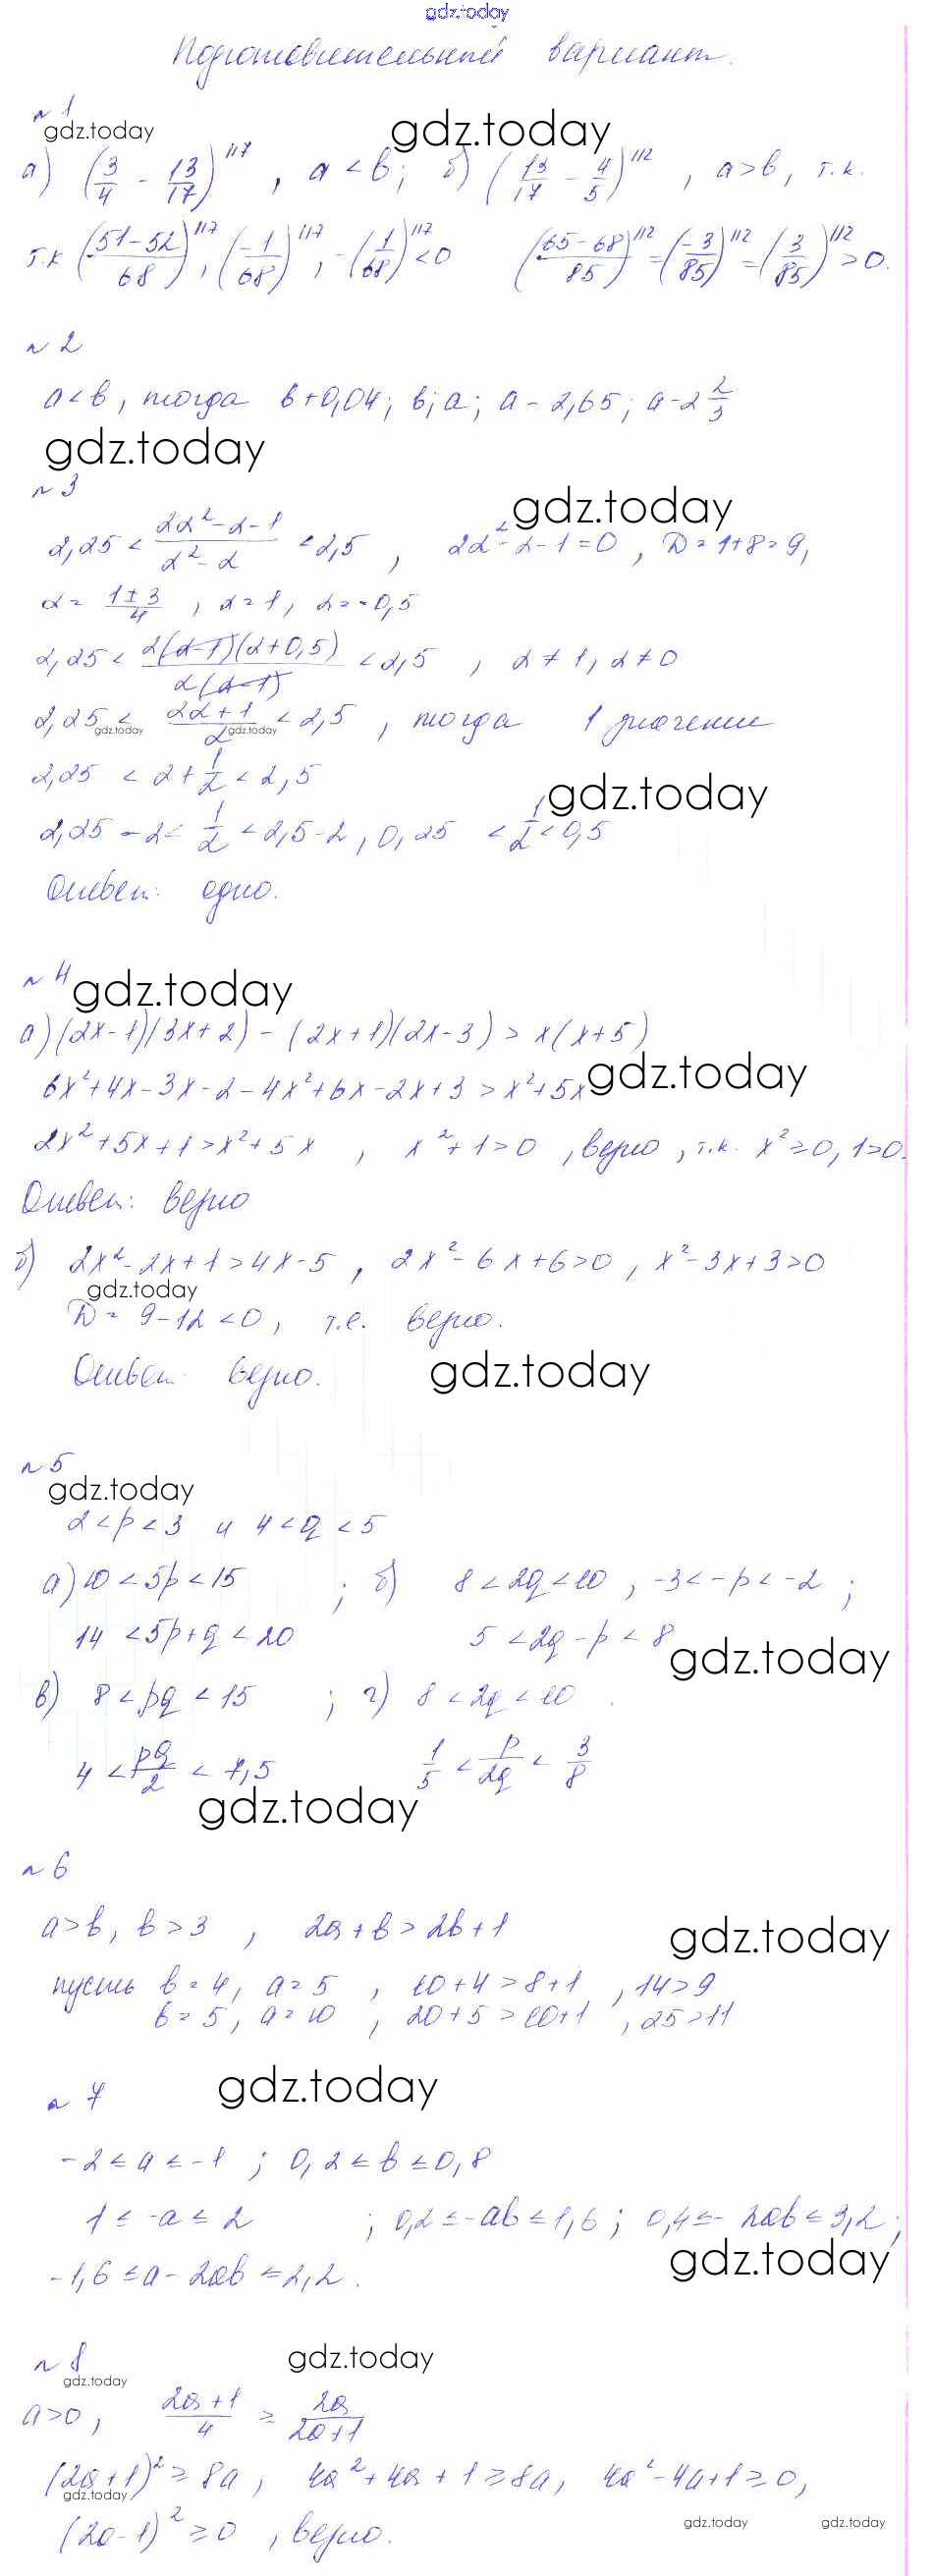 gdz.today
Подготовительный вариант.
№1
gdz.today gdz.today
а) (3/4 - 13/17)^117, a < b; б) (13/17 - 4/5)^112, a > b, т.к.
т.к ((51-52)/68)^117, (-1/68)^117, -(1/68)^117 < 0 ((65-68)/85)^112 = (-3/85)^112 = (3/85)^112 > 0.
№2
a < b, тогда b+0,04; b; a; a - 2,65; a - 2 2/3
gdz.today
№3
gdz.today
2,25 < (2α²-α-1)/(α²-α) < 2,5, 2α²-α-1=0, D=1+8=9,
α = (1±3)/4, α=1, α=-0,5
2,25 < 2(α-1)(α+0,5)/α(α-1) < 2,5, α≠1, α≠0
2,25 < (2α+1)/α < 2,5, тогда 1 значение
gdz.today gdz.today
2,25 < 2 + 1/α < 2,5
gdz.today
2,25 - 2 < 1/α < 2,5 - 2, 0,25 < 1/α < 0,5
Ответ: одно.
№4
gdz.today
а) (2x-1)(3x+2) - (2x+1)(2x-3) > x(x+5)
6x²+4x-3x-2-4x²+6x-2x+3 > x²+5x
gdz.today
2x²+5x+1 > x²+5x, x²+1 > 0, верно, т.к. x²≥0, 1>0.
Ответ: верно
б) 2x²-2x+1 > 4x-5, 2x²-6x+6>0, x²-3x+3>0
gdz.today
D = 9-12 < 0, т.е. верно.
Ответ: верно.
gdz.today
№5
gdz.today
2 < p < 3 и 4 < q < 5
а) 10 < 5p < 15; б) 8 < 2q < 10, -3 < -p < -2;
14 < 5p+q < 20 5 < 2q - p < 8
gdz.today
в) 8 < pq < 15; г) 8 < 2q < 10.
4 < pq/2 < 7,5 1/5 < p/2q < 3/8
gdz.today
№6
a > b, b > 3, 2a + b > 2b + 1
gdz.today
пусть b = 4, a = 5, 10+4 > 8+1, 14 > 9
b = 5, a = 10, 20+5 > 10+1, 25 > 11
gdz.today
№7
-2 ≤ a ≤ -1; 0,2 ≤ b ≤ 0,8
1 ≤ -a ≤ 2; 0,2 ≤ -ab ≤ 1,6; 0,4 ≤ -2ab ≤ 3,2;
gdz.today
-1,6 ≤ a - 2ab ≤ 2,2.
№8
gdz.today
gdz.today
a > 0, (2a+1)/4 ≥ 2a/(2a+1)
(2a+1)² ≥ 8a, 4a²+4a+1 ≥ 8a, 4a²-4a+1 ≥ 0,
gdz.today
(2a-1)² ≥ 0, верно.
gdz.today gdz.today